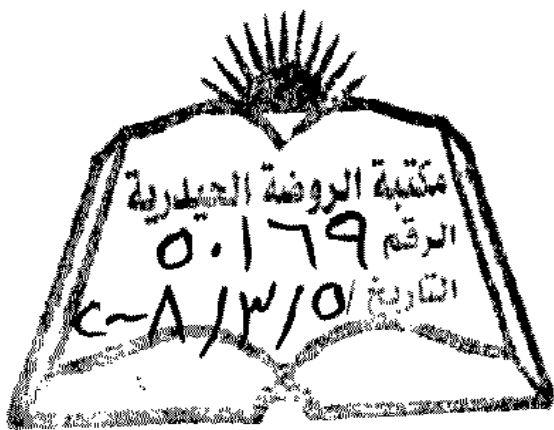 مكتبة الروضة الحيدرية
الرقم ٥٠١٦٩
التاريخ ٥/٣/٨